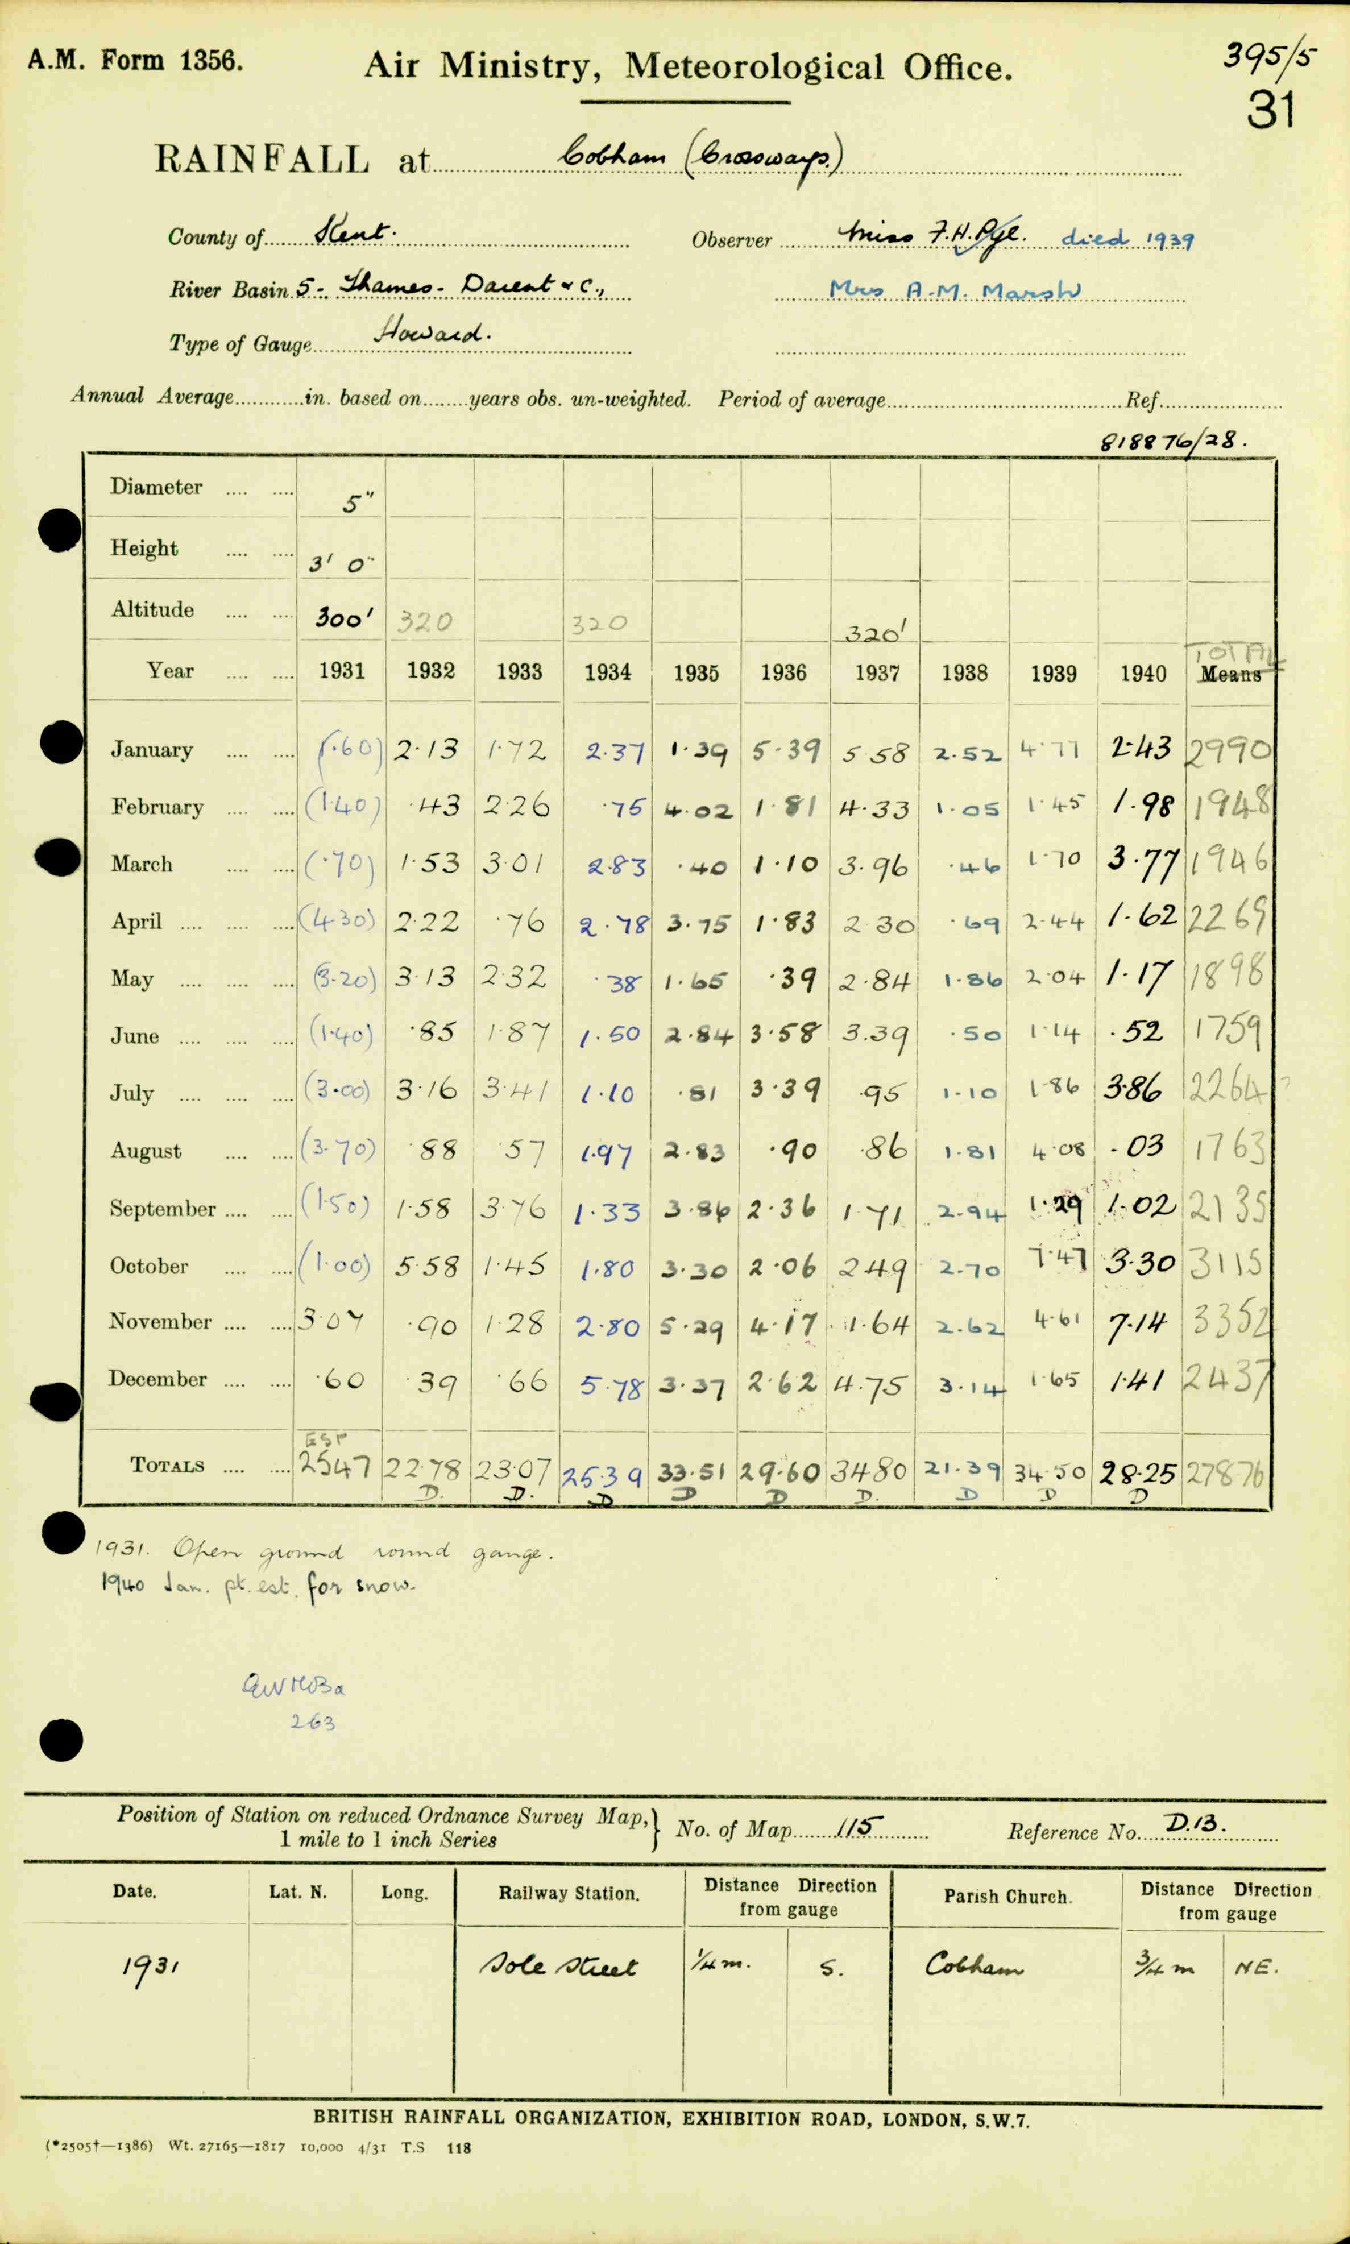 A.M. Form 1356.
Air Ministry, Meteorological Office.
395/5
31
RAINFALL at Cobham (Crossways.)
County of Kent. Observer Miss F.H. Pye. died 1939
River Basin 5 - Thames - Darent & C., Mrs A.M. Marsh
Type of Gauge Howard.
Annual Average in. based on years obs. un-weighted. Period of average Ref.
818876/28.
Diameter 5"
Height 3' 0"
Altitude 300' 320 320 320'
TOTAL
Year 1931 1932 1933 1934 1935 1936 1937 1938 1939 1940 Means
January (1.60) 2.13 1.72 2.37 1.39 5.39 5.58 2.52 4.77 2.43 2990
February (1.40) .43 2.26 .75 4.02 1.81 4.33 1.05 1.45 1.98 1948
March (.70) 1.53 3.01 2.83 .40 1.10 3.96 .46 1.70 3.77 1946
April (4.30) 2.22 .76 2.78 3.75 1.83 2.30 .69 2.44 1.62 2269
May (3.20) 3.13 2.32 .38 1.65 .39 2.84 1.86 2.04 1.17 1898
June (1.40) .85 1.87 1.50 2.84 3.58 3.39 .50 1.14 .52 1759
July (3.00) 3.16 3.41 1.10 .81 3.39 .95 1.10 1.86 3.86 2264 ?
August (3.70) .88 .57 1.97 2.83 .90 .86 1.81 4.08 .03 1763
September (1.50) 1.58 3.76 1.33 3.86 2.36 1.71 2.94 1.29 1.02 2135
October (1.00) 5.58 1.45 1.80 3.30 2.06 2.49 2.70 7.47 3.30 3115
November 3.07 .90 1.28 2.80 5.29 4.17 1.64 2.62 4.61 7.14 3352
December .60 .39 .66 5.78 3.37 2.62 4.75 3.14 1.65 1.41 2437
EST
TOTALS 2547 22.78 23.07 25.39 33.51 29.60 34.80 21.39 34.50 28.25 27876
D. D. D D D D. D D D
1931. Open ground round gauge.
1940 Jan. pt. est. for snow.
263
Position of Station on reduced Ordnance Survey Map, 1 mile to 1 inch Series } No. of Map 115 Reference No. D.13.
Date. Lat. N. Long. Railway Station. Distance Direction from gauge Parish Church. Distance Direction from gauge
1931 Sole Street 1/4 m. S. Cobham 3/4 m NE.
BRITISH RAINFALL ORGANIZATION, EXHIBITION ROAD, LONDON, S.W.7.
(*2505†—1386) Wt. 27165—1817 10,000 4/31 T.S 118